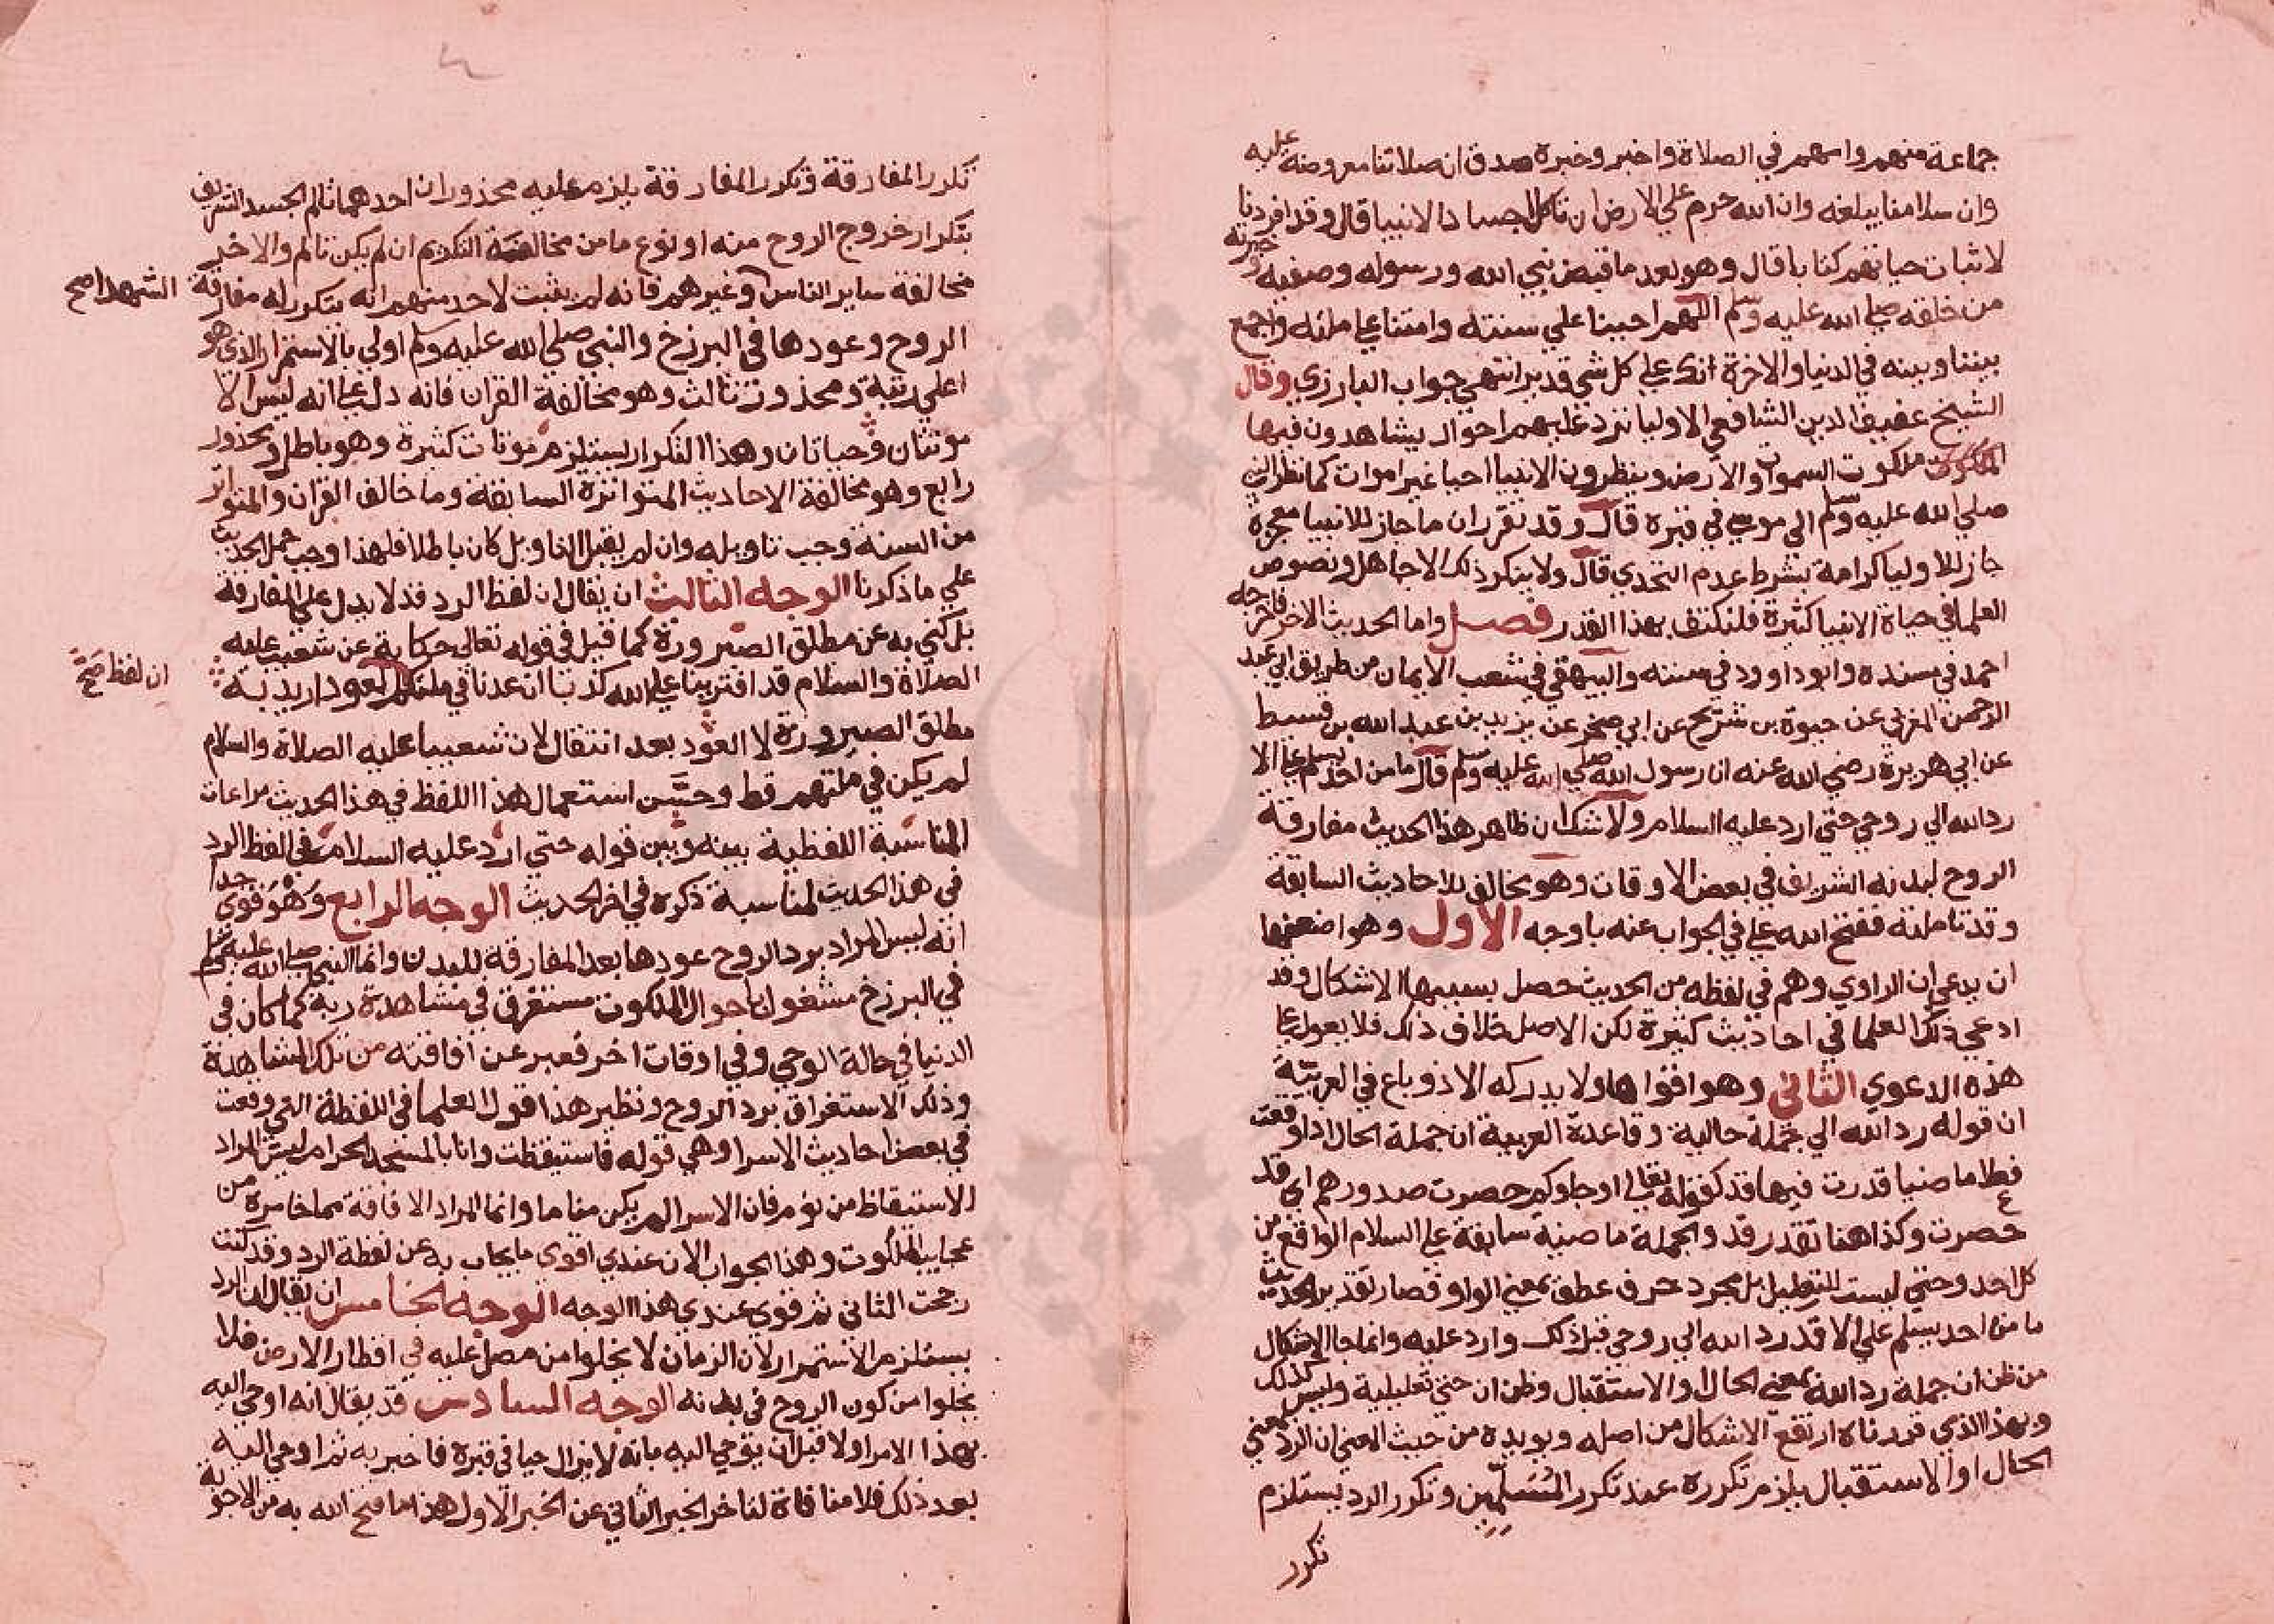 جماعة منهم وامهم في الصلاة واخبر وخبره صدق ان صلاتنا معروضة عليه
وان سلامنا يبلغه وان الله حرم علي الارض ان تاكل اجساد الانبيا قال وقد افردنا
لاثبات حياتهم كتابا قال وهو بعد ما قبض نبي الله ورسوله وصفيه وخيرته
من خلقه صلي الله عليه وسلم اللهم احينا علي سنته وامتنا علي ملته واجمع
بيننا وبينه في الدنيا والاخرة انك علي كل شي قدير انتهي جواب البارزي وقال
الشيخ عفيف الدين الشافعي الاوليا ترد عليهم احوال يشاهدون فيها
ملكوت السموات والارض وينظرون الانبيا احيا غير اموات كما نظر النبي
صلي الله عليه وسلم الي موسي في قبره قال وقد تقرر ان ما جاز للانبيا معجزة
جاز للاوليا كرامة بشرط عدم التحدي قال ولا ينكر ذلك الا جاهل ونصوص
العلما في حياة الانبيا كثيرة فلنكتف بهذا القدر فصل واما الحديث الاخر فاخرجه
احمد في مسنده وابو داوود في سننه والبيهقي في شعب الايمان من طريق ابي عبد
الرحمن المقري عن حيوة بن شريح عن ابي صخر عن يزيد بن عبد الله بن قسيط
عن ابي هريرة رضي الله عنه ان رسول الله صلي الله عليه وسلم قال ما من احد يسلم علي الا
رد الله الي روحي حتي ارد عليه السلام ولا شك ان ظاهر هذا الحديث مفارقة
الروح لبدنه الشريف في بعض الاوقات وهو مخالف للاحاديث السابقة
وقد تاملته ففتح الله علي في الجواب عنه باوجه الاول وهو اضعفها
ان يدعي ان الراوي وهم في لفظه من الحديث حصل بسببها الاشكال وقد
ادعي ذلك العلما في احاديث كثيرة لكن الاصل خلاف ذلك فلا يعول علي
هذه الدعوي الثاني وهو اقواها ولا يدركه الا ذو باع في العربية
ان قوله رد الله الي جملة حالية وقاعدة العربية ان جملة الحال اذا وقعت
فعلا ماضيا قدرت فيها قد كقوله تعالي او جاوكم حصرت صدورهم اي قد
حصرت وكذا هنا تقدر قد والجملة ماضية سابقة علي السلام الواقع من
كل احد وحتي ليست للتعليل بل مجرد حرف عطف بمعني الواو فصار تقدير الحديث
ما من احد يسلم علي الا قد رد الله الي روحي قبل ذلك وارد عليه وانما جا الاشكال
من ظن ان جملة رد الله بمعني الحال او الاستقبال وظن ان حتي تعليلية وليس كذلك
وبهذا الذي قررناه ارتفع الاشكال من اصله ويويده من حيث المعني ان الرد بمعني
الحال او الاستقبال يلزم تكرره عند تكرر المسلمين وتكرر الرد يستلزم
تكرر
تكرر المفارقة وتكرر المفارقة يلزم عليه محذوران احدهما تالم الجسد الشريف
بتكرار خروج الروح منه او نوع ما من مخالفة التكريم ان لم يكن تالم والاخر
مخالفة ساير الناس وغيرهم فانه لم يثبت لاحد منهم انه يتكرر له مفارقة
الشهدا صح
الروح وعودها في البرزخ والنبي صلي الله عليه وسلم اولي بالاستمرار الذي هو
اعلي رتبة ومحذور ثالث وهو مخالفة القران فانه دل علي انه ليس الا
موتتان وحياتان وهذا التكرار يستلزم موتات كثيرة وهو باطل ومحذور
رابع وهو مخالفة الاحاديث المتواترة السابقة وما خالف القران والمتواتر
من السنة وجب تاويله وان لم يقبل التاويل كان باطلا فلهذا وجب حمل الحديث
علي ما ذكرنا الوجه الثالث ان يقال ان لفظ الرد قد لا يدل علي المفارقة
بل كني به عن مطلق الصيرورة كما قيل في قوله تعالي حكاية عن شعيب عليه
الصلاة والسلام قد افترينا علي الله كذبا ان عدنا في ملتكم العود اريد به
ان لفظ صح
مطلق الصيرورة لا العود بعد انتقال لان شعيبا عليه الصلاة والسلام
لم يكن في ملتهم قط وحسن استعمال هذا اللفظ في هذا الحديث مراعات
المناسبة اللفظية بينه وبين قوله حتي ارد عليه السلام في لفظ الرد
في هذا الحديث لمناسبة ذكره في اخر الحديث الوجه الرابع وهو قوي جدا
انه ليس المراد برد الروح عودها بعد المفارقة للبدن وانما النبي صلي الله عليه وسلم
في البرزخ مشغول باحوال الملكوت مستغرق في مشاهدة ربه كما كان في
الدنيا في حالة الوحي وفي اوقات اخر فعبر عن افاقته من تلك المشاهدة
وذلك الاستغراق برد الروح ونظير هذا قول العلما في اللفظة التي وقعت
في بعض احاديث الاسرا وهي قوله فاستيقظت وانا بالمسجد الحرام ليس المراد
الاستيقاظ من نوم فان الاسرا لم يكن مناما وانما المراد الافاقة مما خامره من
عجايب الملكوت وهذا الجواب الان عندي اقوي ما يجاب به عن لفظة الرد وقد كنت
رجحت الثاني ثم قوي عندي هذا الوجه الوجه الخامس ان يقال ان الرد
يستلزم الاستمرار لان الزمان لا يخلوا من مصل عليه في اقطار الارض فلا
يخلوا من كون الروح في بدنه الوجه السادس قد يقال انه اوحي اليه
بهذا الامر اولا قبل ان يوحي اليه بانه لا يزال حيا في قبره فاخبر به ثم اوحي اليه
بعد ذلك فلا منافاة لتاخر الخبر الثاني عن الخبر الاول هذا ما فتح الله به من الاجوبة